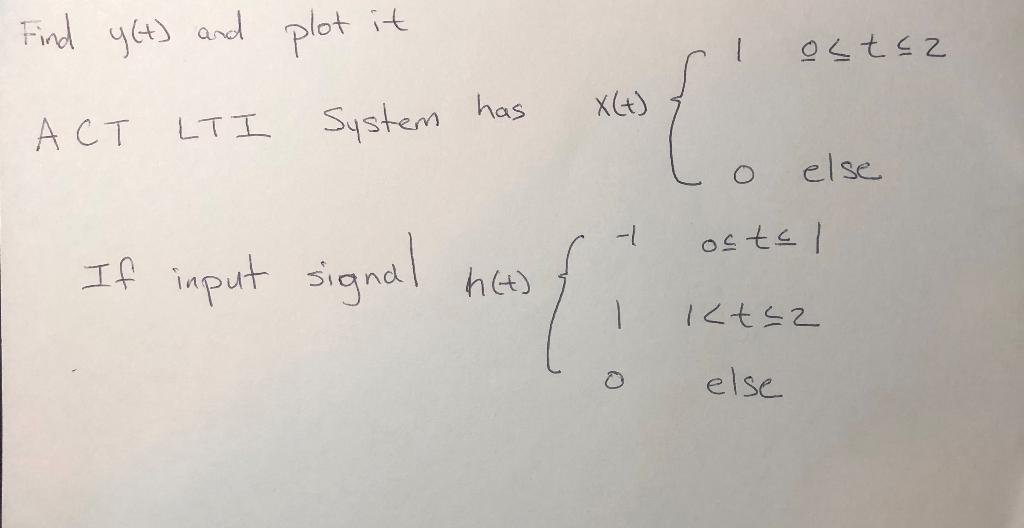 Find y(t) and plot it
A CT LTI System has x(t) { 1 0 ≤ t ≤ 2
0 else
If input signal h(t) { -1 0 ≤ t ≤ 1
1 1 < t ≤ 2
0 else